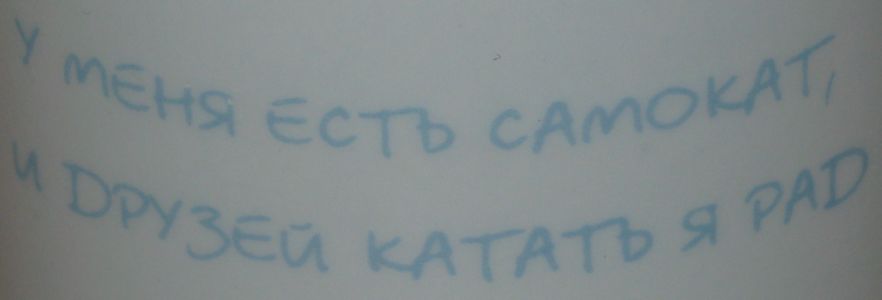 У МЕНЯ ЕСТЬ САМОКАТ,
И DРУЗЕЙ КАТАТЬ Я РАD